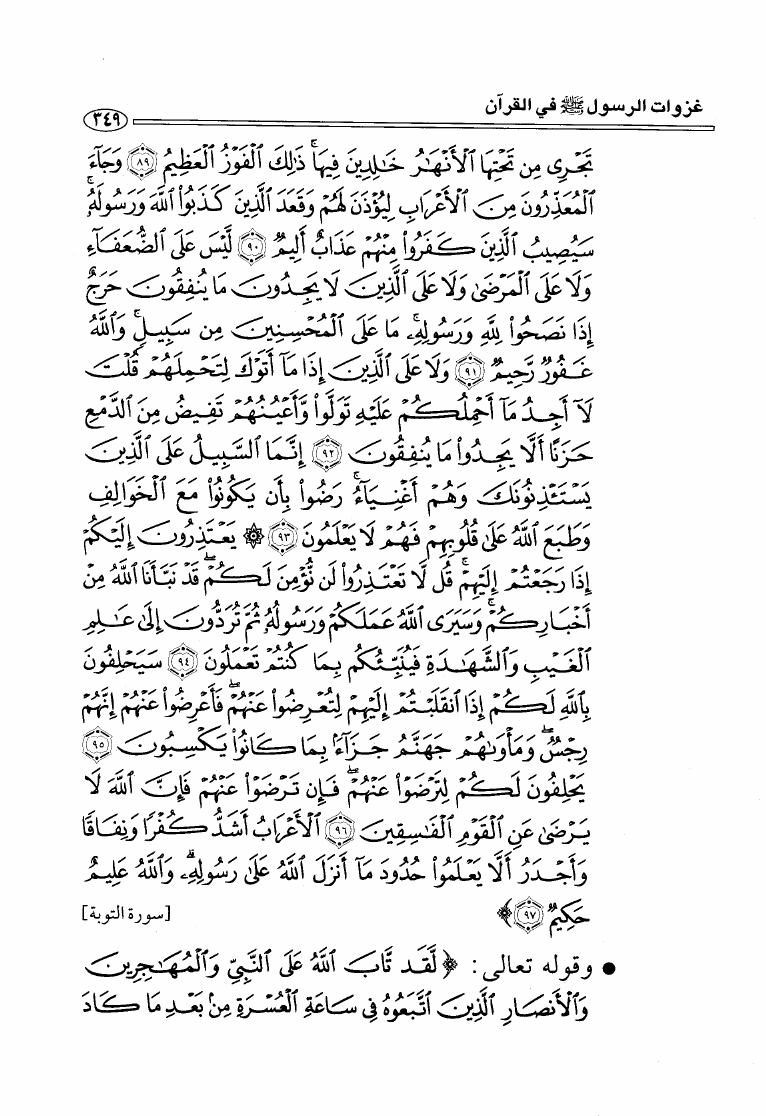 غزوات الرسول ﷺ في القرآن
٣٤٩
تَجْرِى مِن تَحْتِهَا ٱلْأَنْهَٰرُ خَٰلِدِينَ فِيهَا ۚ ذَٰلِكَ ٱلْفَوْزُ ٱلْعَظِيمُ ٨٩ وَجَآءَ
ٱلْمُعَذِّرُونَ مِنَ ٱلْأَعْرَابِ لِيُؤْذَنَ لَهُمْ وَقَعَدَ ٱلَّذِينَ كَذَبُوا۟ ٱللَّهَ وَرَسُولَهُۥ ۚ
سَيُصِيبُ ٱلَّذِينَ كَفَرُوا۟ مِنْهُمْ عَذَابٌ أَلِيمٌ ٩٠ لَّيْسَ عَلَى ٱلضُّعَفَآءِ
وَلَا عَلَى ٱلْمَرْضَىٰ وَلَا عَلَى ٱلَّذِينَ لَا يَجِدُونَ مَا يُنفِقُونَ حَرَجٌ
إِذَا نَصَحُوا۟ لِلَّهِ وَرَسُولِهِۦ ۚ مَا عَلَى ٱلْمُحْسِنِينَ مِن سَبِيلٍ ۚ وَٱللَّهُ
غَفُورٌ رَّحِيمٌ ٩١ وَلَا عَلَى ٱلَّذِينَ إِذَا مَآ أَتَوْكَ لِتَحْمِلَهُمْ قُلْتَ
لَآ أَجِدُ مَآ أَحْمِلُكُمْ عَلَيْهِ تَوَلَّوا۟ وَّأَعْيُنُهُمْ تَفِيضُ مِنَ ٱلدَّمْعِ
حَزَنًا أَلَّا يَجِدُوا۟ مَا يُنفِقُونَ ٩٢ إِنَّمَا ٱلسَّبِيلُ عَلَى ٱلَّذِينَ
يَسْتَـْٔذِنُونَكَ وَهُمْ أَغْنِيَآءُ ۚ رَضُوا۟ بِأَن يَكُونُوا۟ مَعَ ٱلْخَوَالِفِ
وَطَبَعَ ٱللَّهُ عَلَىٰ قُلُوبِهِمْ فَهُمْ لَا يَعْلَمُونَ ٩٣ ۞ يَعْتَذِرُونَ إِلَيْكُمْ
إِذَا رَجَعْتُمْ إِلَيْهِمْ ۚ قُل لَّا تَعْتَذِرُوا۟ لَن نُّؤْمِنَ لَكُمْ ۖ قَدْ نَبَّأَنَا ٱللَّهُ مِنْ
أَخْبَارِكُمْ ۚ وَسَيَرَى ٱللَّهُ عَمَلَكُمْ وَرَسُولُهُۥ ثُمَّ تُرَدُّونَ إِلَىٰ عَٰلِمِ
ٱلْغَيْبِ وَٱلشَّهَٰدَةِ فَيُنَبِّئُكُم بِمَا كُنتُمْ تَعْمَلُونَ ٩٤ سَيَحْلِفُونَ
بِٱللَّهِ لَكُمْ إِذَا ٱنقَلَبْتُمْ إِلَيْهِمْ لِتُعْرِضُوا۟ عَنْهُمْ ۖ فَأَعْرِضُوا۟ عَنْهُمْ إِنَّهُمْ
رِجْسٌ ۖ وَمَأْوَىٰهُمْ جَهَنَّمُ جَزَآءًۢ بِمَا كَانُوا۟ يَكْسِبُونَ ٩٥
يَحْلِفُونَ لَكُمْ لِتَرْضَوْا۟ عَنْهُمْ ۖ فَإِن تَرْضَوْا۟ عَنْهُمْ فَإِنَّ ٱللَّهَ لَا
يَرْضَىٰ عَنِ ٱلْقَوْمِ ٱلْفَٰسِقِينَ ٩٦ ٱلْأَعْرَابُ أَشَدُّ كُفْرًا وَنِفَاقًا
وَأَجْدَرُ أَلَّا يَعْلَمُوا۟ حُدُودَ مَآ أَنزَلَ ٱللَّهُ عَلَىٰ رَسُولِهِۦ ۗ وَٱللَّهُ عَلِيمٌ
حَكِيمٌ ٩٧ ﴾ [سورة التوبة]
● وقوله تعالى: ﴿ لَّقَد تَّابَ ٱللَّهُ عَلَى ٱلنَّبِىِّ وَٱلْمُهَٰجِرِينَ
وَٱلْأَنصَارِ ٱلَّذِينَ ٱتَّبَعُوهُ فِى سَاعَةِ ٱلْعُسْرَةِ مِنۢ بَعْدِ مَا كَادَ